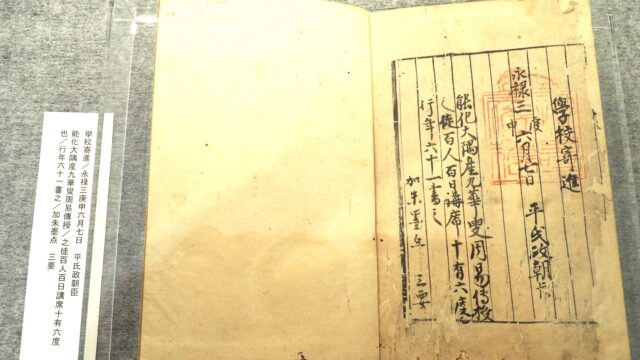 學校寄進
永禄三庚申六月七日 平氏政朝臣
能化大隅産九華叟周易傳授
之徒百人百日講席十有六度
行年六十一書之
加朱墨点 三要
學校寄進／永禄三庚申六月七日 平氏政朝臣
能化大隅産九華叟周易傳授／之徒百人百日講席十有六度
也／行年六十一書之／加朱墨点 三要